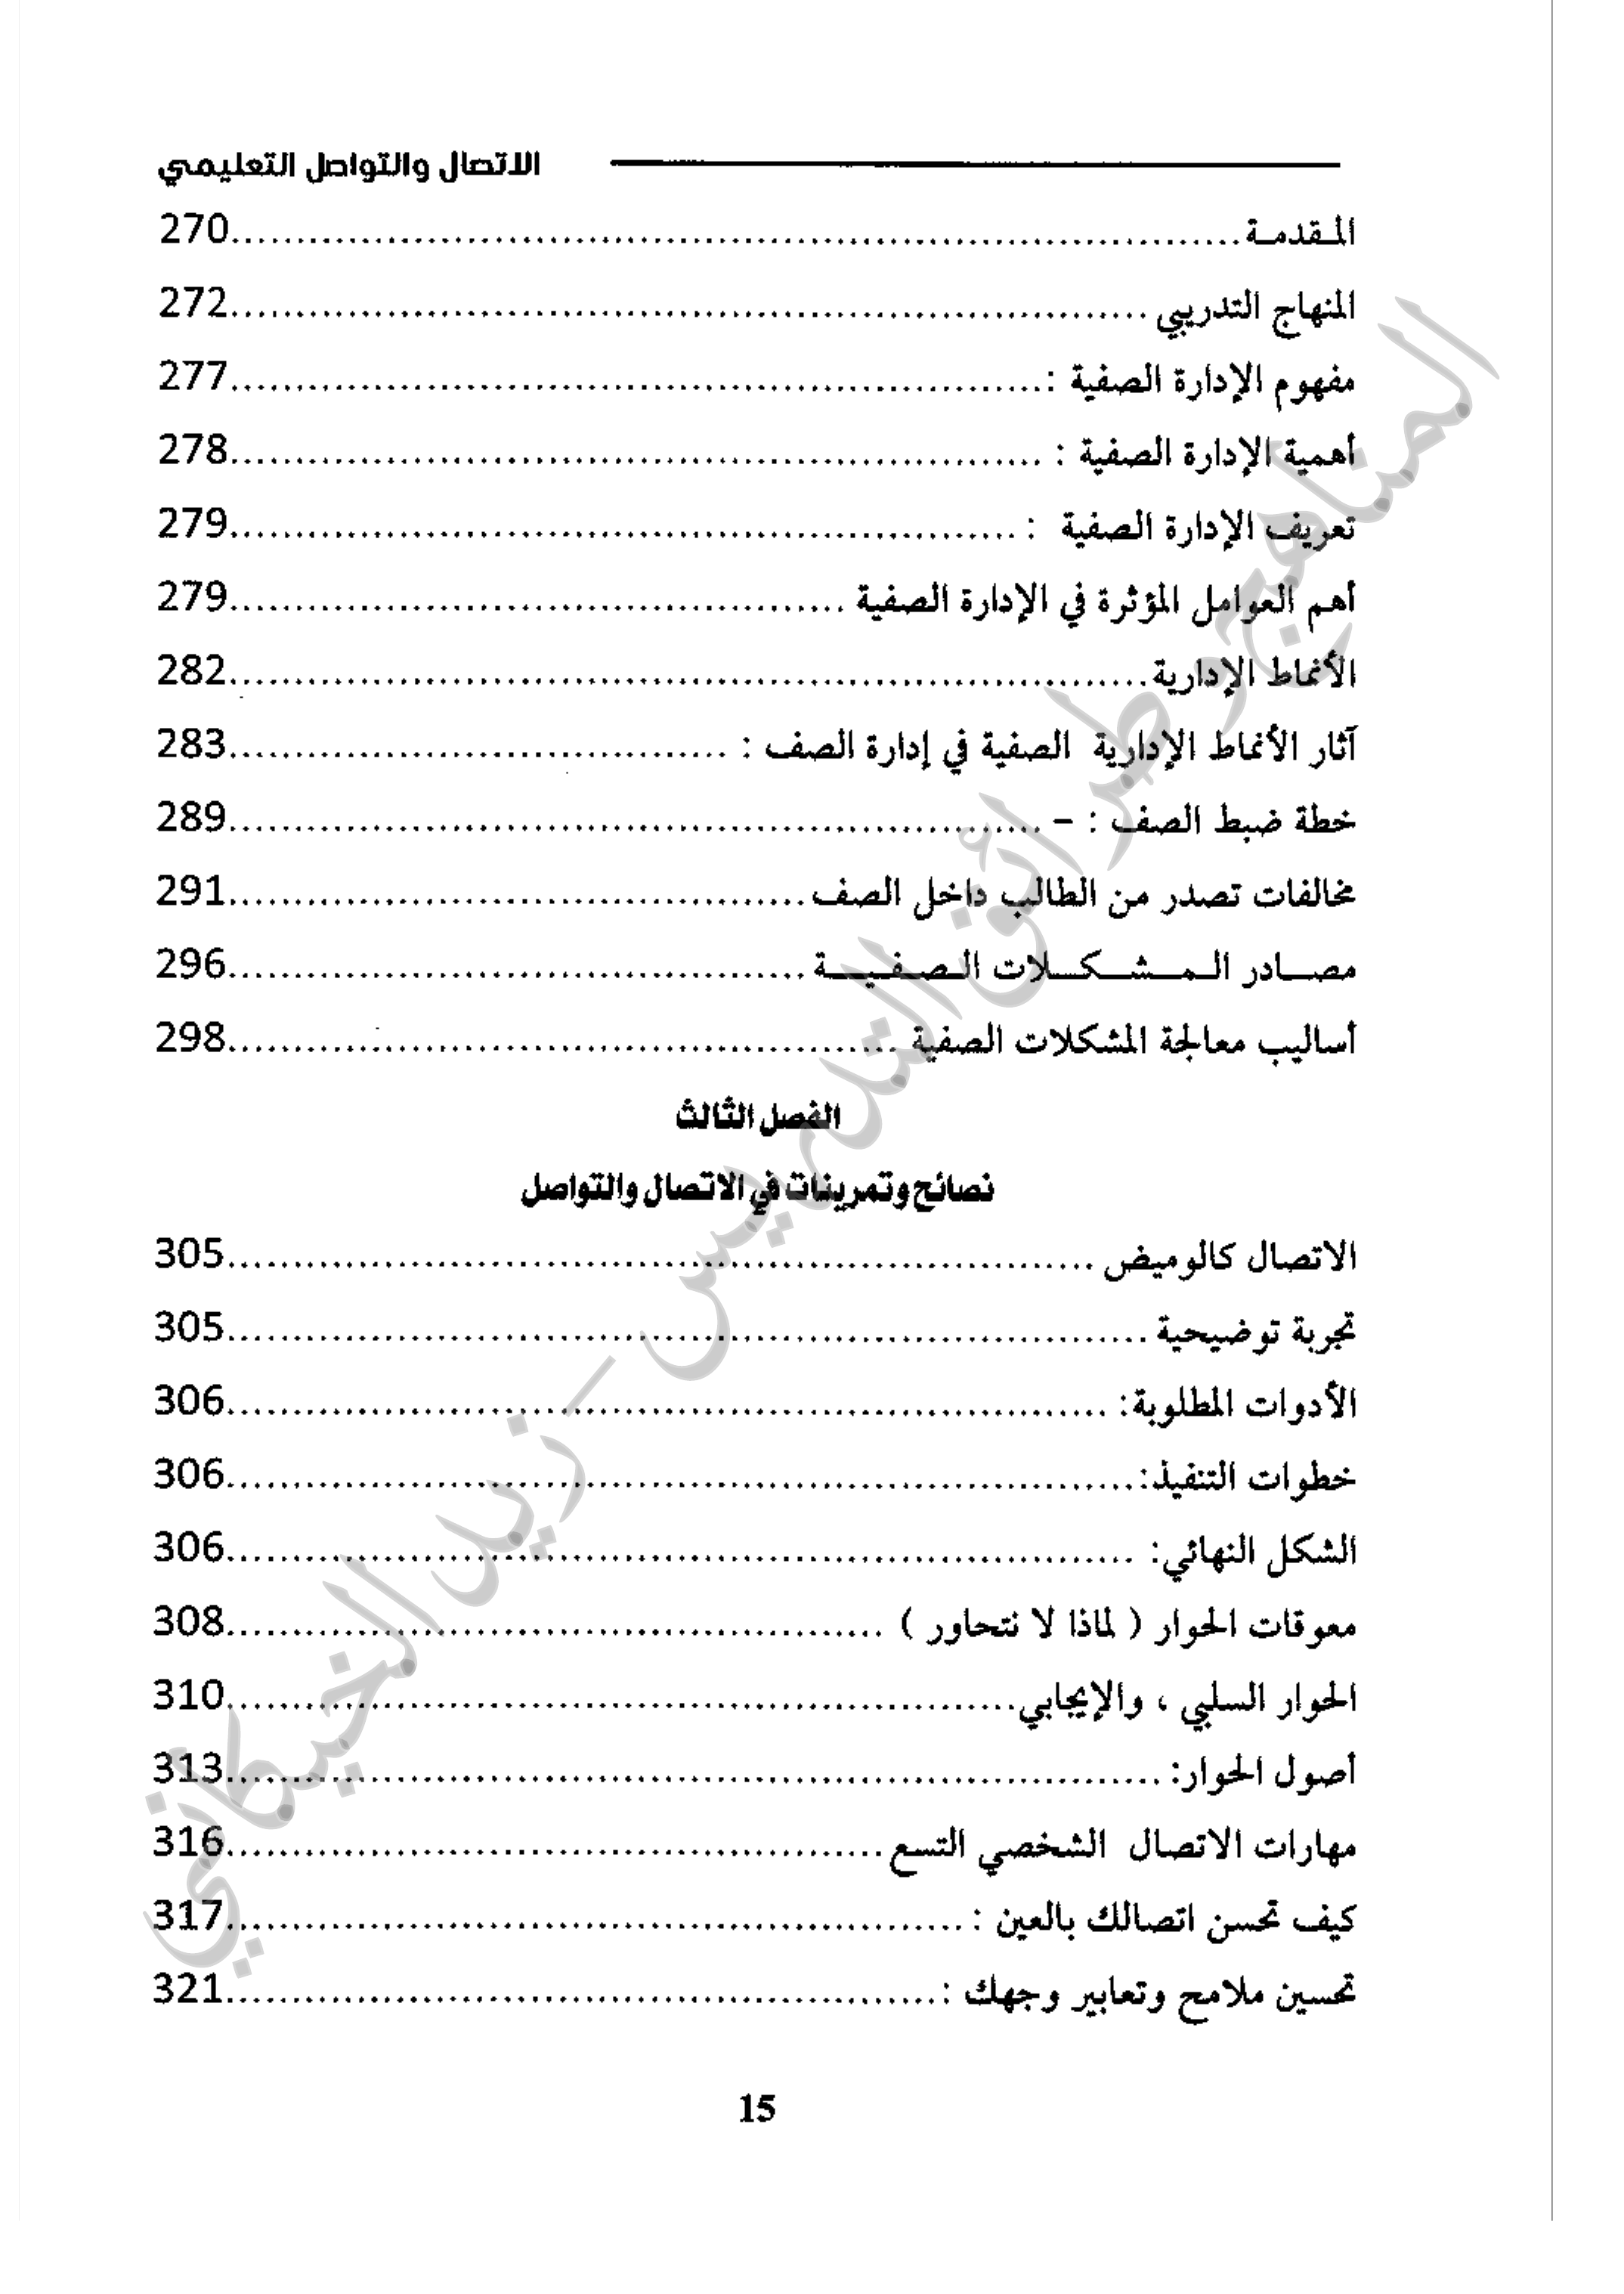 الاتصال والتواصل التعليمي
المـقدمـة................................270
المنهاج التدريبي ................................272
مفهوم الإدارة الصفية :................................277
أهمية الإدارة الصفية : ................................278
تعريف الإدارة الصفية : ................................279
أهم العوامل المؤثرة في الإدارة الصفية ................................279
الأنماط الإدارية................................282
آثار الأنماط الإدارية الصفية في إدارة الصف : ................................283
خطة ضبط الصف : – ................................289
مخالفات تصدر من الطالب داخل الصف................................291
مصــادر الـمــشــكــلات الـصـفـيــة................................296
أساليب معالجة المشكلات الصفية ................................298
الفصل الثالث
نصائح وتمرينات في الاتصال والتواصل
الاتصال كالوميض ................................305
تجربة توضيحية ................................305
الأدوات المطلوبة: ................................306
خطوات التنفيذ:................................306
الشكل النهائي: ................................306
معوقات الحوار ( لماذا لا نتحاور ) ................................308
الحوار السلبي ، والإيجابي................................310
أصول الحوار: ................................313
مهارات الاتصال الشخصي التسع................................316
كيف تحسن اتصالك بالعين : ................................317
تحسين ملامح وتعابير وجهك :................................321
15
المناهج وطرائق التدريس – زيد الخيكاني